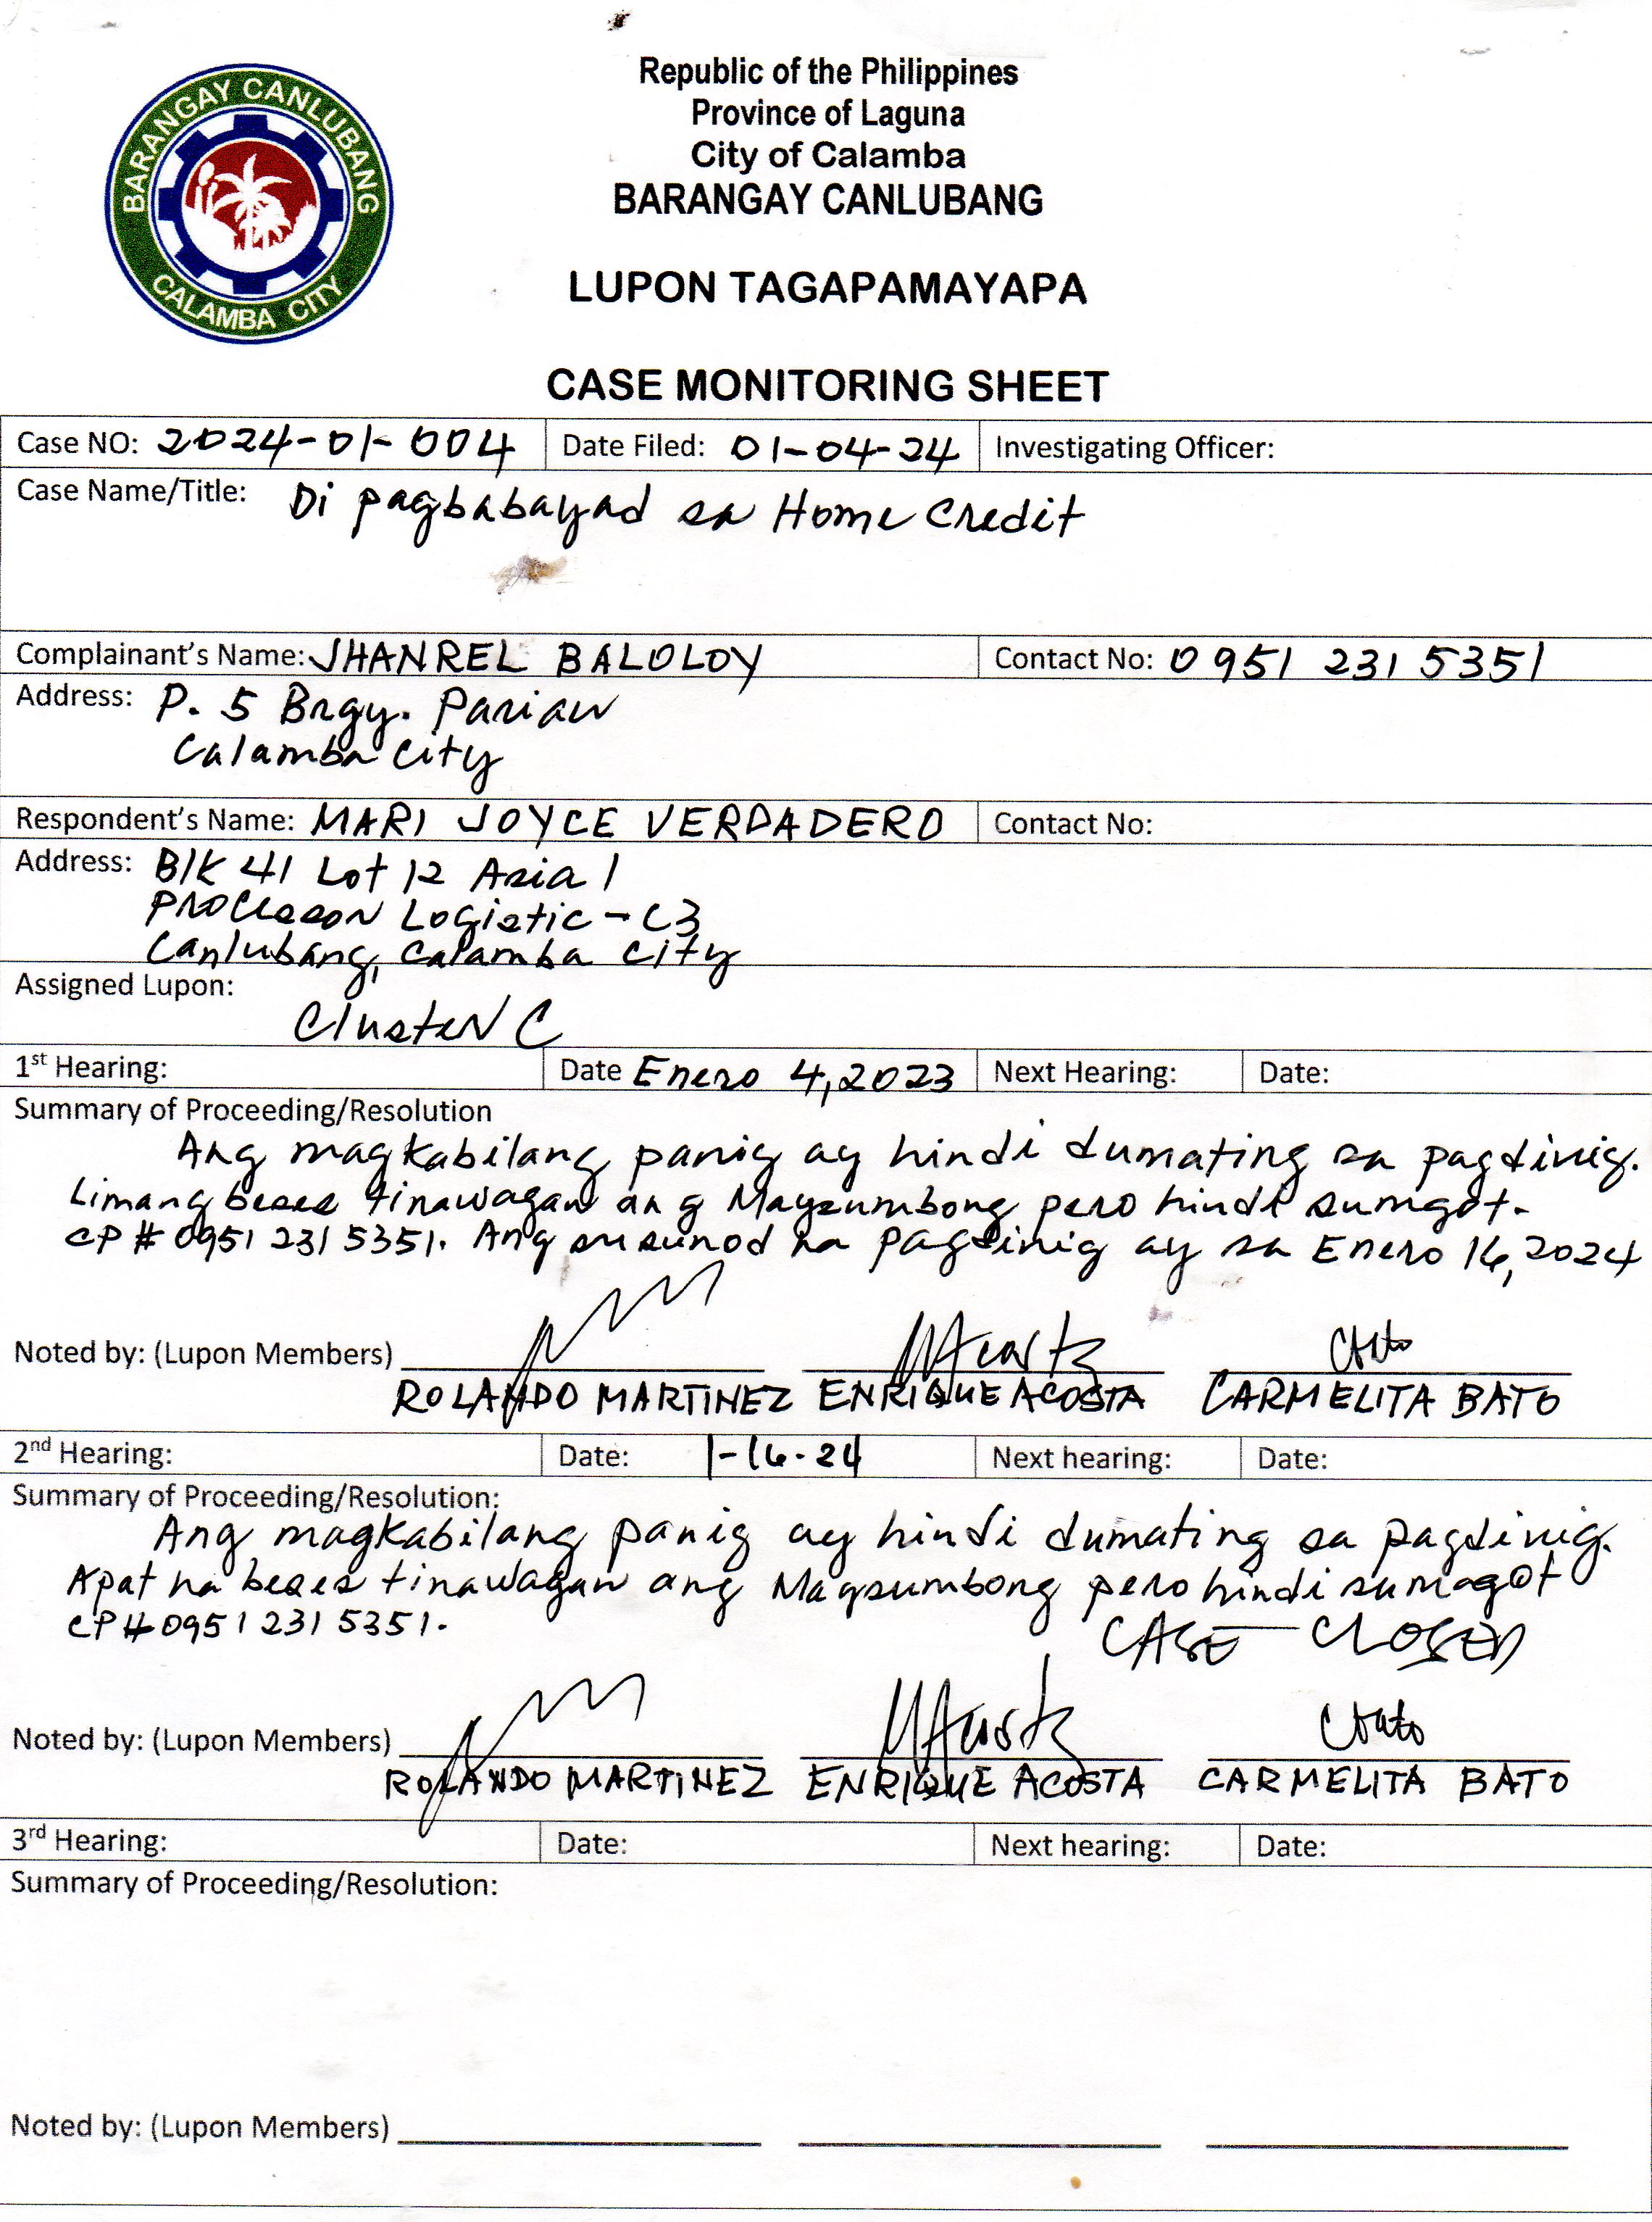 BARANGAY CANLUBANG
CALAMBA CITY
Republic of the Philippines
Province of Laguna
City of Calamba
BARANGAY CANLUBANG
LUPON TAGAPAMAYAPA
CASE MONITORING SHEET
Case NO: 2024-01-004 Date Filed: 01-04-24 Investigating Officer:
Case Name/Title: Di pagbabayad sa Home Credit
Complainant's Name: JHANREL BALOLOY Contact No: 0951 231 5351
Address: P. 5 Brgy. Parian
Calamba City
Respondent's Name: MARI JOYCE VERDADERO Contact No:
Address: Blk 41 Lot 12 Asia 1
Logistic - C3
Canlubang, Calamba City
Assigned Lupon:
Cluster C
1st Hearing: Date Enero 4, 2023 Next Hearing: Date:
Summary of Proceeding/Resolution
Ang magkabilang panig ay hindi dumating sa pagdinig.
Limang beses tinawagan ang Magsumbong pero hindi sumgot.
CP # 0951 231 5351. Ang susunod na pagdinig ay sa Enero 16, 2024
Noted by: (Lupon Members)
ROLANDO MARTINEZ ENRIQUE ACOSTA CARMELITA BATO
2nd Hearing: Date: 1-16-24 Next hearing: Date:
Summary of Proceeding/Resolution:
Ang magkabilang panig ay hindi dumating sa pagdinig.
Apat na beses tinawagan ang Magsumbong pero hindi sumagot
CP # 0951 231 5351.
CASE CLOSED
Noted by: (Lupon Members)
ROLANDO MARTINEZ ENRIQUE ACOSTA CARMELITA BATO
3rd Hearing: Date: Next hearing: Date:
Summary of Proceeding/Resolution:
Noted by: (Lupon Members)